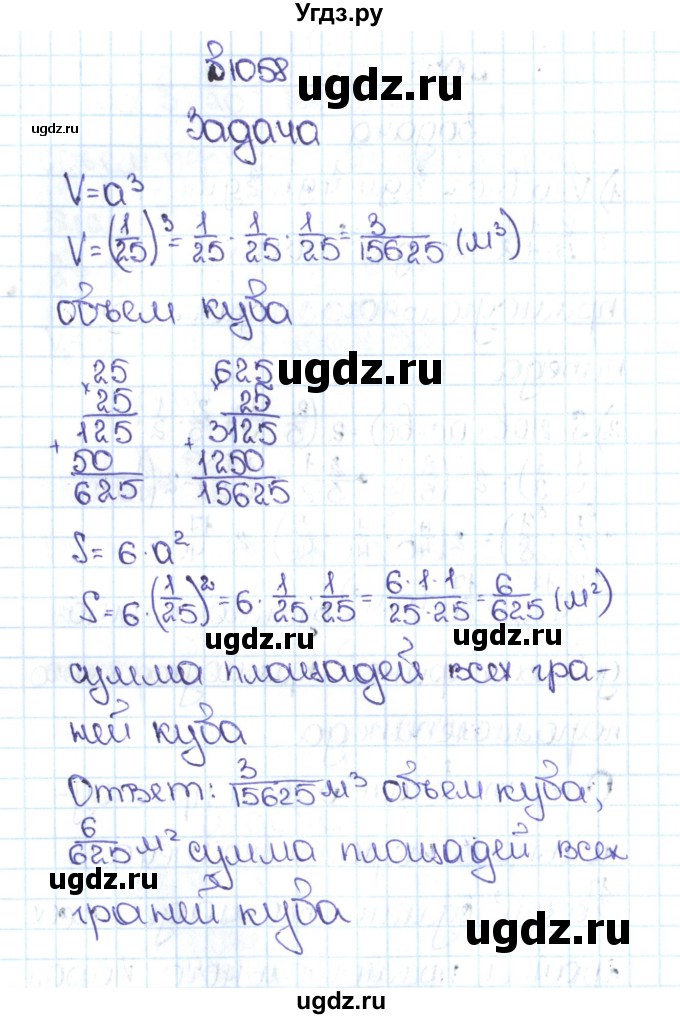 Угдз.ру
№1058
ugdz.ru
ugdz.ru
Задача
V=a³
V=(1/25)³=1/25·1/25·1/25=3/15625 (м³)
объем куба
ugdz.ru
25 625
×25 ×25
+125 +3125
50 1250
625 15625
S=6·a²
S=6·(1/25)²=6·1/25·1/25=6·1·1/25·25=6/625 (м²)
ugdz.ru ugdz.ru
сумма площадей всех гра-
ней куба
Ответ: 3/15625 м³ объем куба,
6/625 м² сумма площадей всех
ugdz.ru
граней куба
ugdz.ru
ugdz.ru